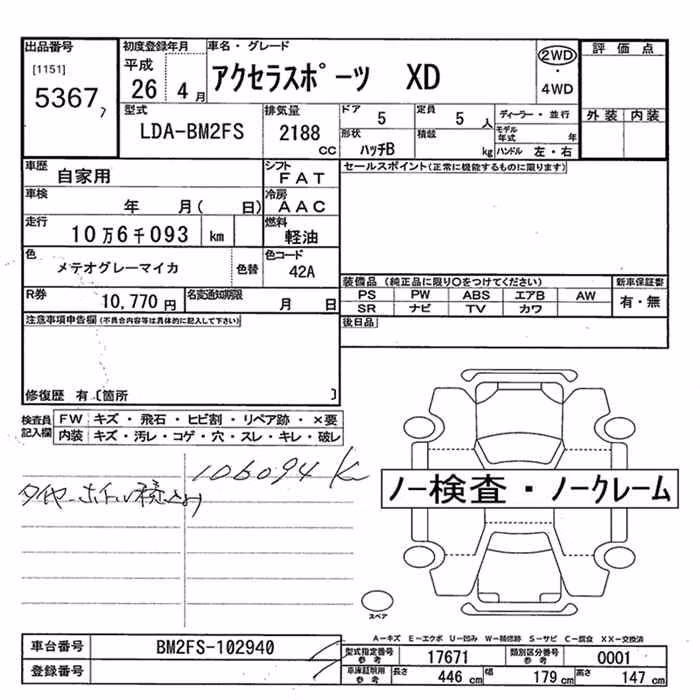 出品番号
[1151]
5367
初度登録年月
平成
26 4月
車名・グレード
アクセラスポーツ XD
2WD
・
4WD
評価点
外装 内装
型式
LDA-BM2FS
排気量
2188
CC
ドア 5
定員 5 人
ディーラー・並行
形状
ハッチB
積載 kg
モデル年式 年
ハンドル 左・右
車歴
自家用
シフト
FAT
セールスポイント(正常に機能するものに限ります)
車検
年 月( 日)
冷房
AAC
走行
10万6千093 km
燃料
軽油
色
メテオグレーマイカ
色替
色コード
42A
装備品(純正品に限り○をつけてください)
新車保証書
PS PW ABS エアB AW
有・無
SR ナビ TV カワ
R券
10,770円
名変通知期限
月 日
後日品
注意事項申告欄(不具合内容等は具体的に記入して下さい)
修復歴 有〔箇所 〕
検査員記入欄
FW キズ・飛石・ヒビ割・リペア跡・×要
内装 キズ・汚レ・コゲ・穴・スレ・キレ・破レ
106094 K
ノー検査・ノークレーム
スペア
A-キズ E-エクボ U-凹み W-補修跡 S-サビ C-腐食 XX-交換済
車台番号 BM2FS-102940
型式指定番号参考 17671
類別区分番号参考 0001
登録番号
車庫証明用参考
長さ 446 cm
幅 179 cm
高さ 147 cm